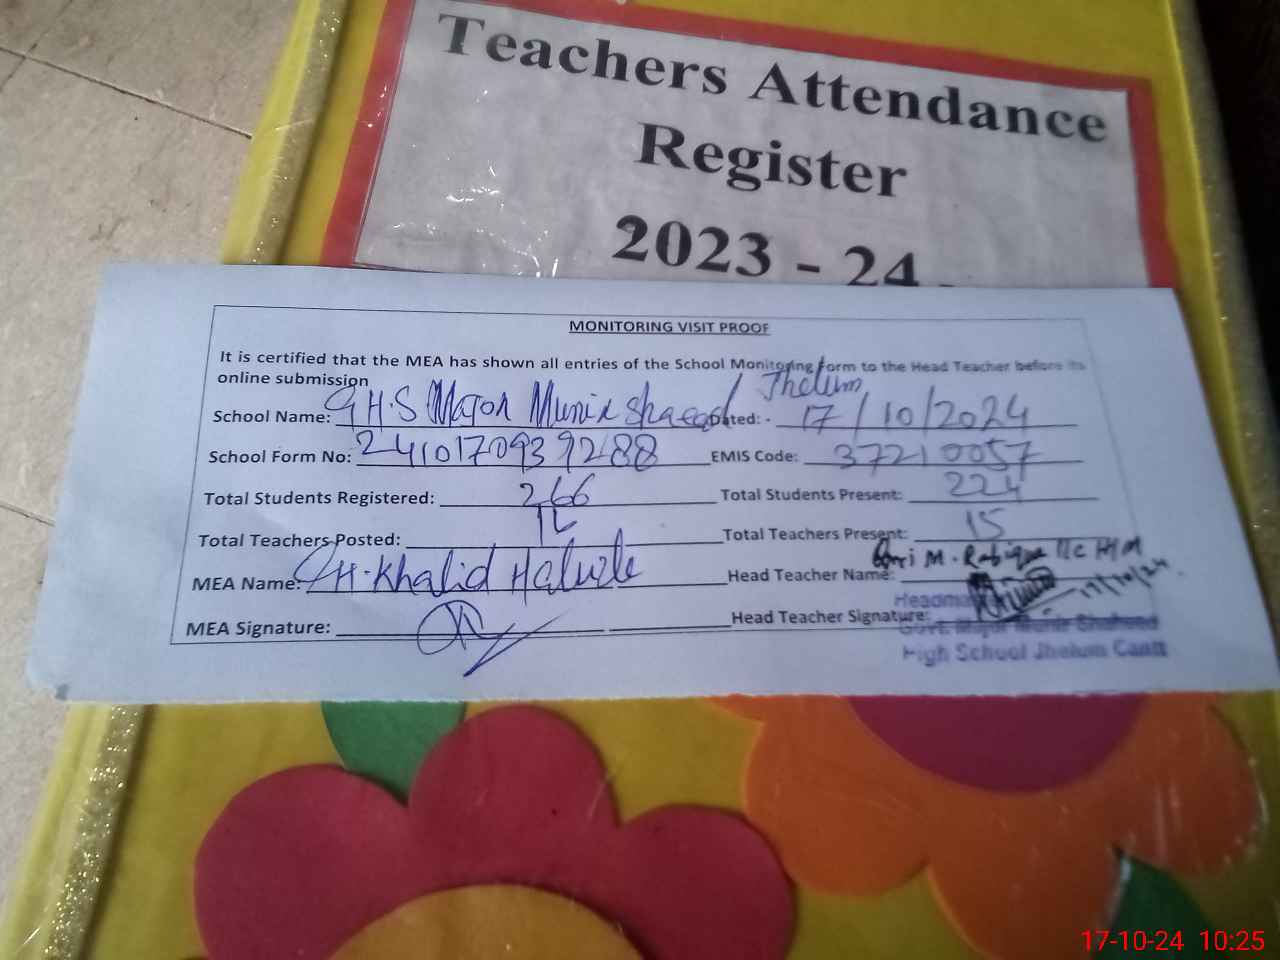 Teachers Attendance
Register
2023 - 24.
MONITORING VISIT PROOF
It is certified that the MEA has shown all entries of the School Monitoring form to the Head Teacher before its
online submission
School Name: G H.S Major Munir Shaeed / Jhelum Dated: - 17/10/2024
School Form No: 241017093 9288 EMIS Code: 37210057
Total Students Registered: 266 Total Students Present: 224
Total Teachers Posted: Total Teachers Present: 15
MEA Name: CH. Khalid Head Teacher Name: Qari M. Rafique I/C H/M
MEA Signature: Head Teacher Signature: 17/10/24
Govt. Major Munir Shaheed
High School Jhelum Cantt
17-10-24 10:25